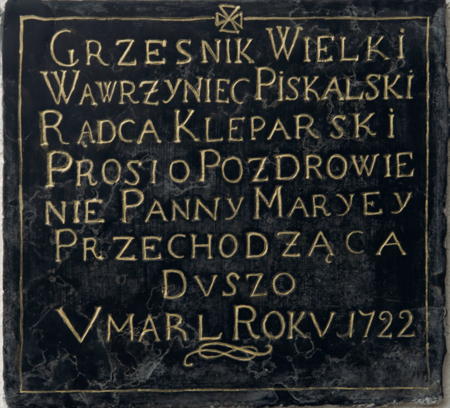 GRZESNIK WIELKI
WĄWRZYNIEC PISKALSKI
RĄDCA KLEPARSKI
PROSI O POZDROWIE
NIE PANNY MARYEY
PRZECHODZĄCA
DVSZO
VMARL ROKV 1722